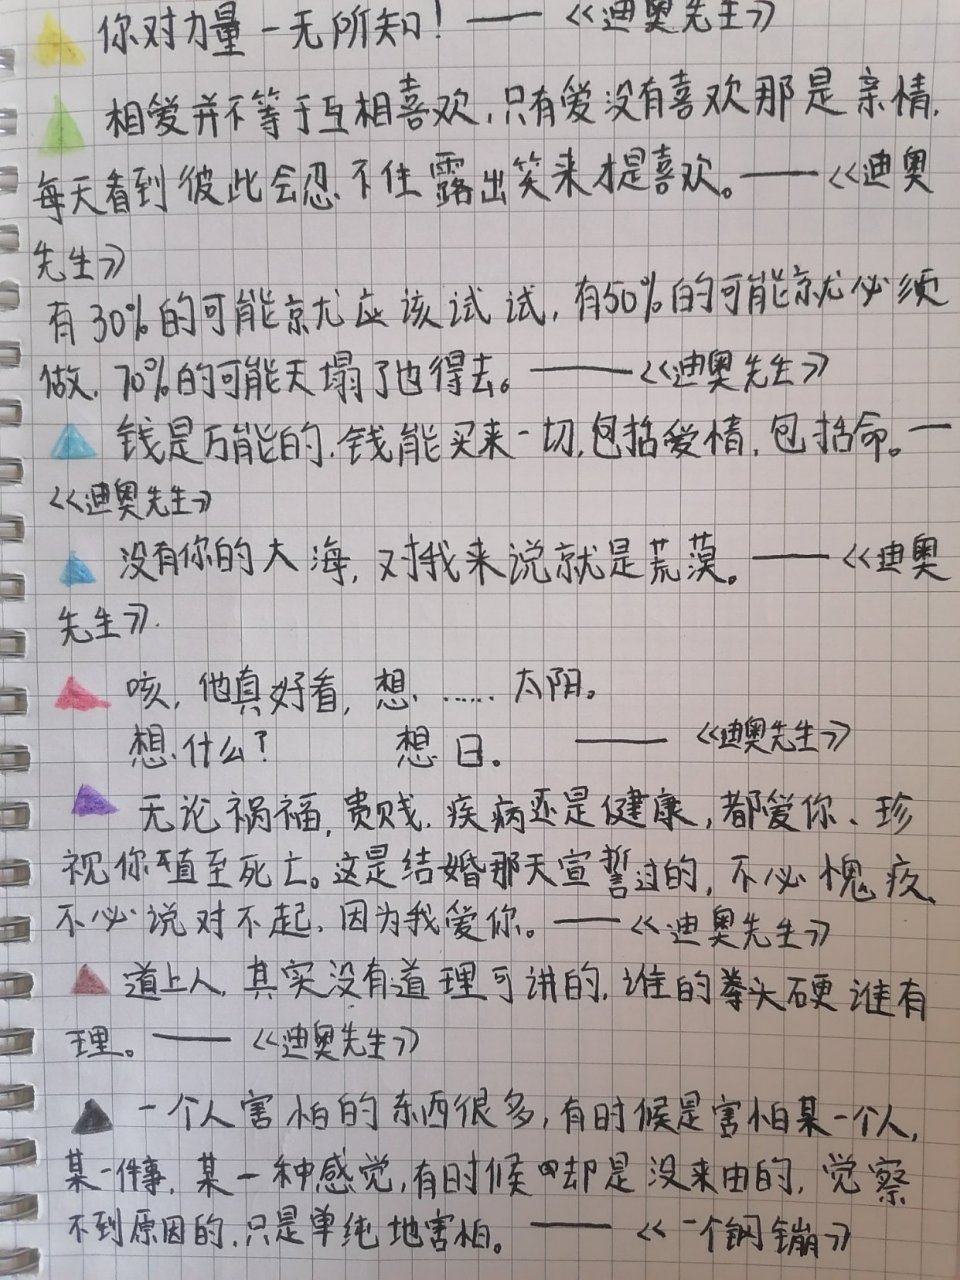 你对力量一无所知！——《迪奥先生》
相爱并不等于互相喜欢，只有爱没有喜欢那是亲情，
每天看到彼此会忍不住露出笑来才是喜欢。——《迪奥
先生》
有30%的可能就应该试试，有50%的可能就必须
做，70%的可能天塌了也得去。——《迪奥先生》
钱是万能的，钱能买来一切，包括爱情，包括命。—
《迪奥先生》
没有你的大海，对我来说就是荒漠。——《迪奥
先生》.
咳，他真好看，想……太阳。
想什么？ 想日。 ——《迪奥先生》
无论祸福，贵贱，疾病还是健康，都爱你、珍
视你直至死亡。这是结婚那天宣誓过的，不必愧疚，
不必说对不起，因为我爱你。——《迪奥先生》
道上人，其实没有道理可讲的，谁的拳头硬谁有
理。——《迪奥先生》
一个人害怕的东西很多，有时候是害怕某一个人，
某一件事，某一种感觉，有时候却是没来由的，觉察
不到原因的，只是单纯地害怕。——《一个钢镚》